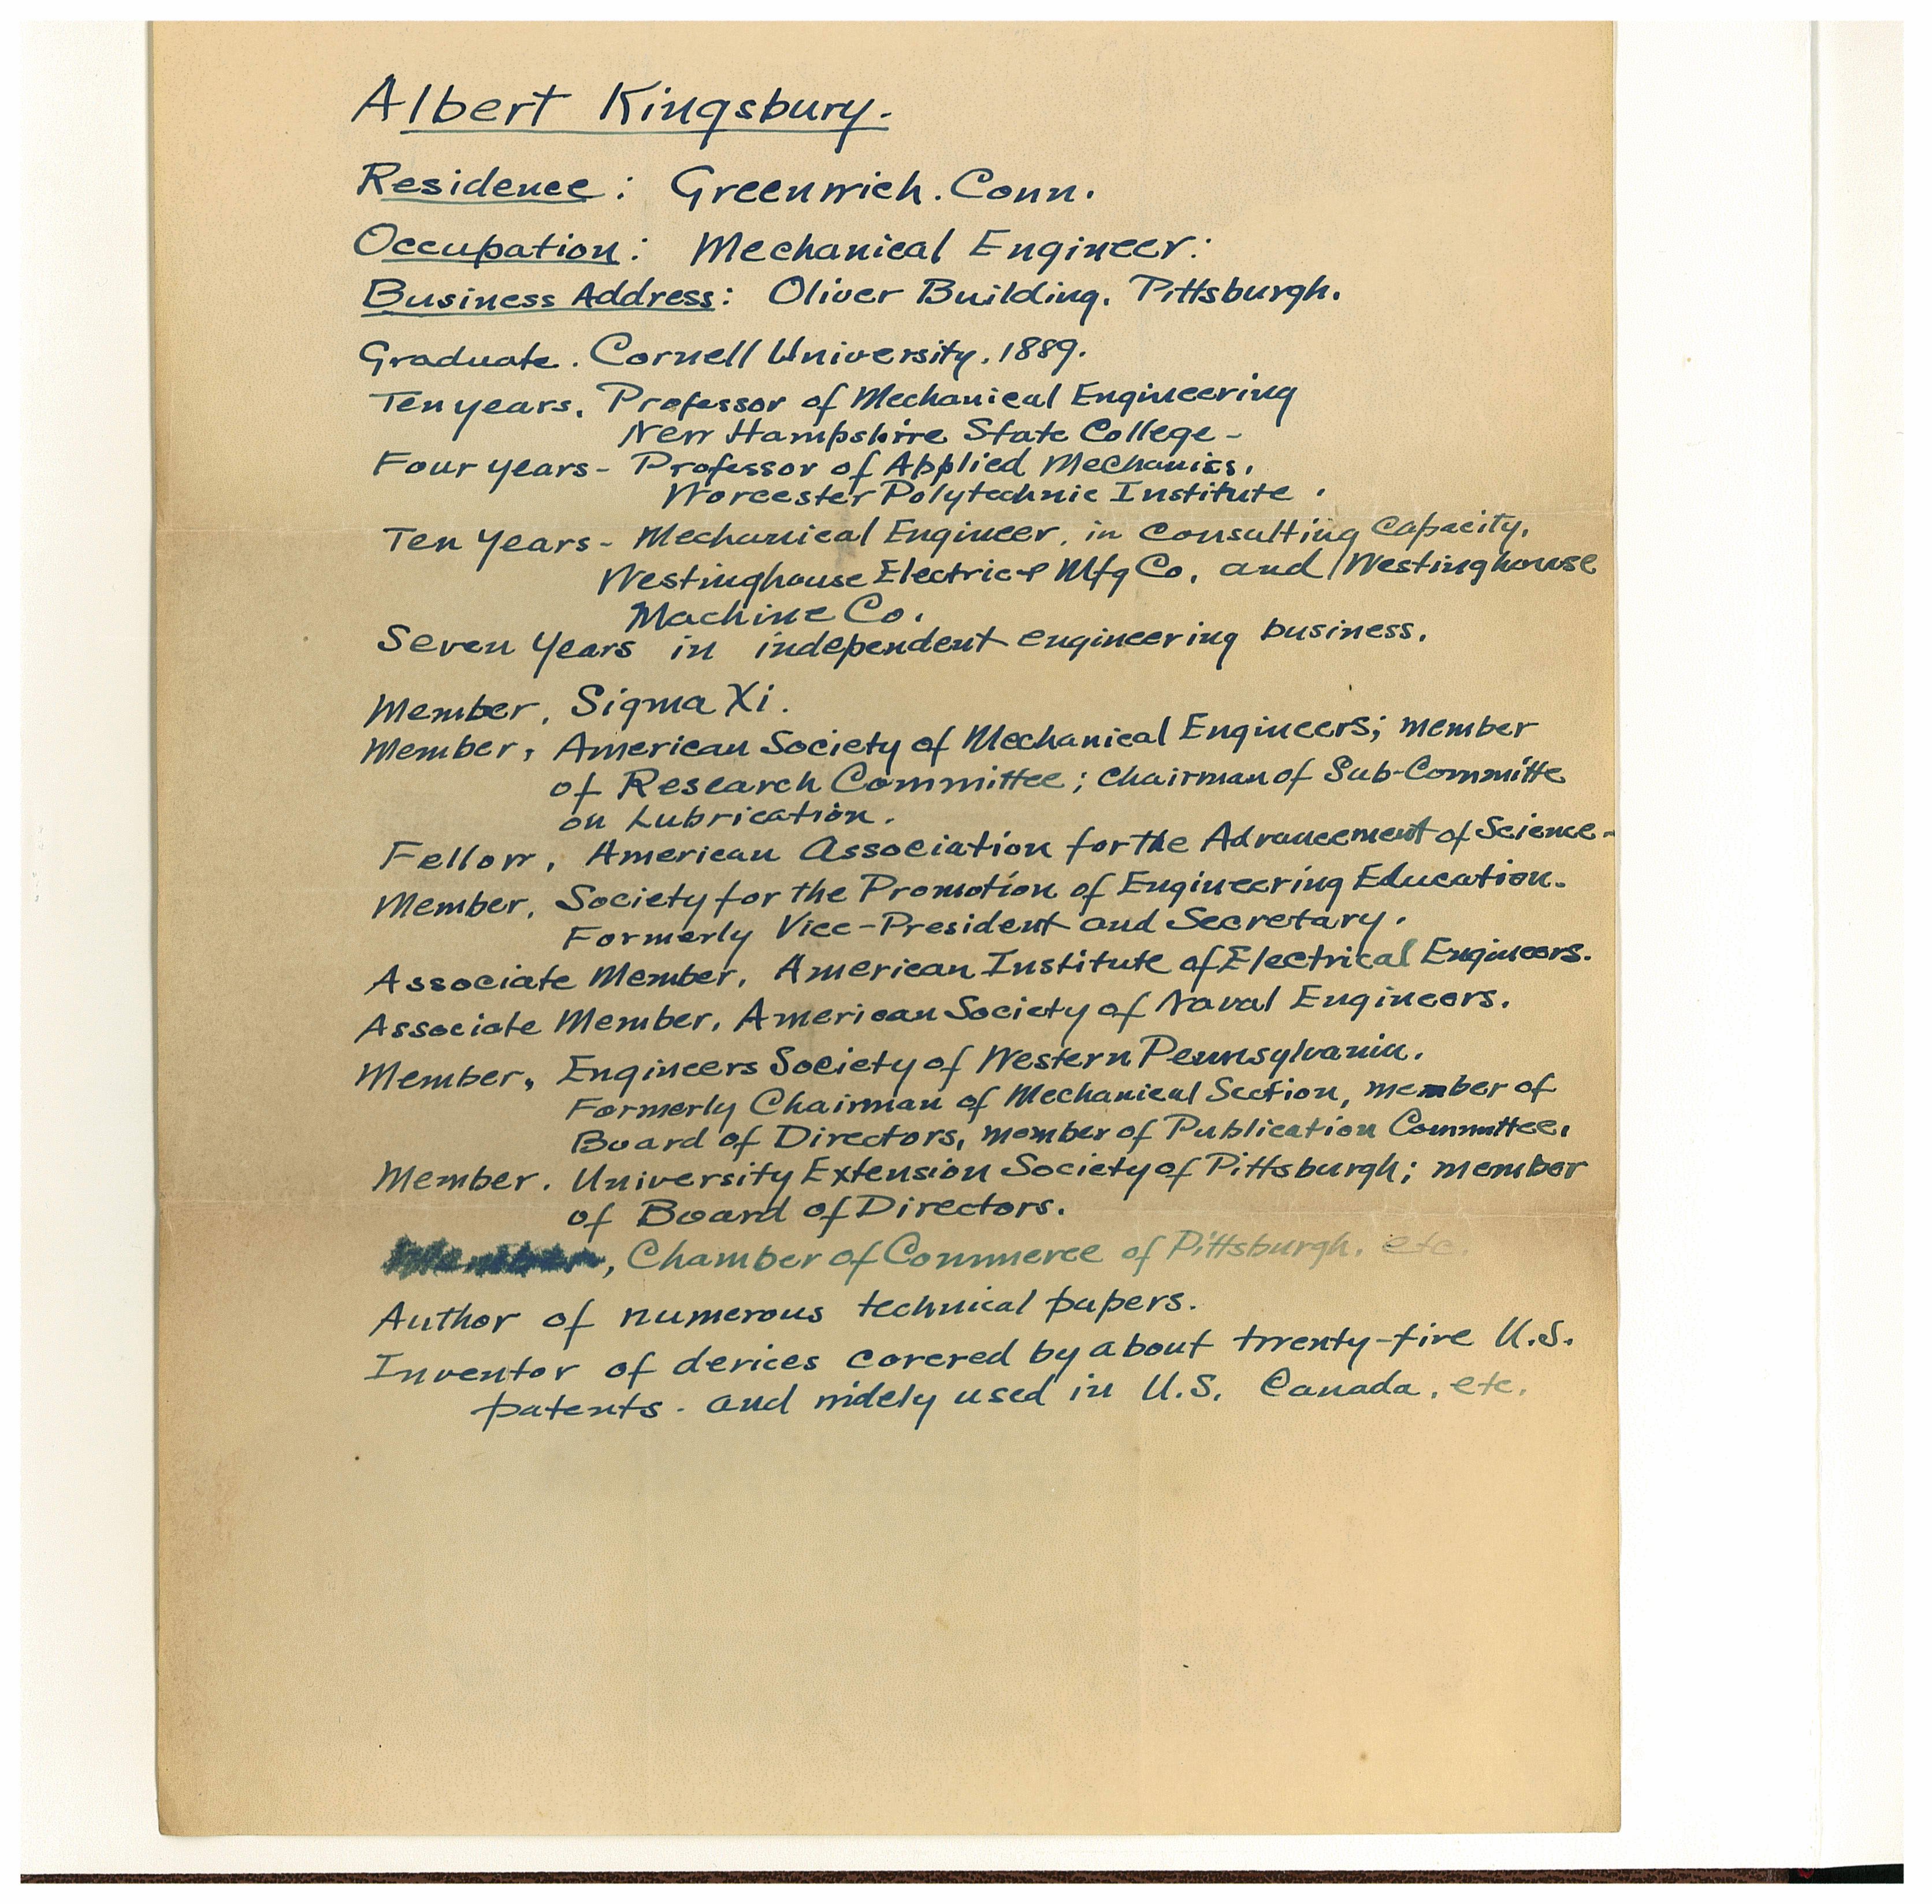 Albert Kingsbury.
Residence: Greenwich. Conn.
Occupation: Mechanical Engineer:
Business Address: Oliver Building. Pittsburgh.
Graduate. Cornell University. 1889.
Ten years. Professor of Mechanical Engineering
New Hampshire State College -
Four years - Professor of Applied Mechanics.
Worcester Polytechnic Institute.
Ten Years - Mechanical Engineer. in Consulting Capacity.
Westinghouse Electric & Mfg Co. and Westinghouse
Machine Co.
Seven Years in independent engineering business.
Member, Sigma Xi.
Member, American Society of Mechanical Engineers; member
of Research Committee; Chairman of Sub-Committe
on Lubrication.
Fellow, American Association for the Advancement of Science -
Member, Society for the Promotion of Engineering Education.
Formerly Vice-President and Secretary.
Associate Member, American Institute of Electrical Engineers.
Associate Member, American Society of Naval Engineers.
Member, Engineers Society of Western Pennsylvania.
Formerly Chairman of Mechanical Section, member of
Board of Directors, member of Publication Committee.
Member. University Extension Society of Pittsburgh; member
of Board of Directors.
Member, Chamber of Commerce of Pittsburgh. etc.
Author of numerous technical papers.
Inventor of devices covered by about twenty-five U.S.
patents - and widely used in U.S. Canada. etc.